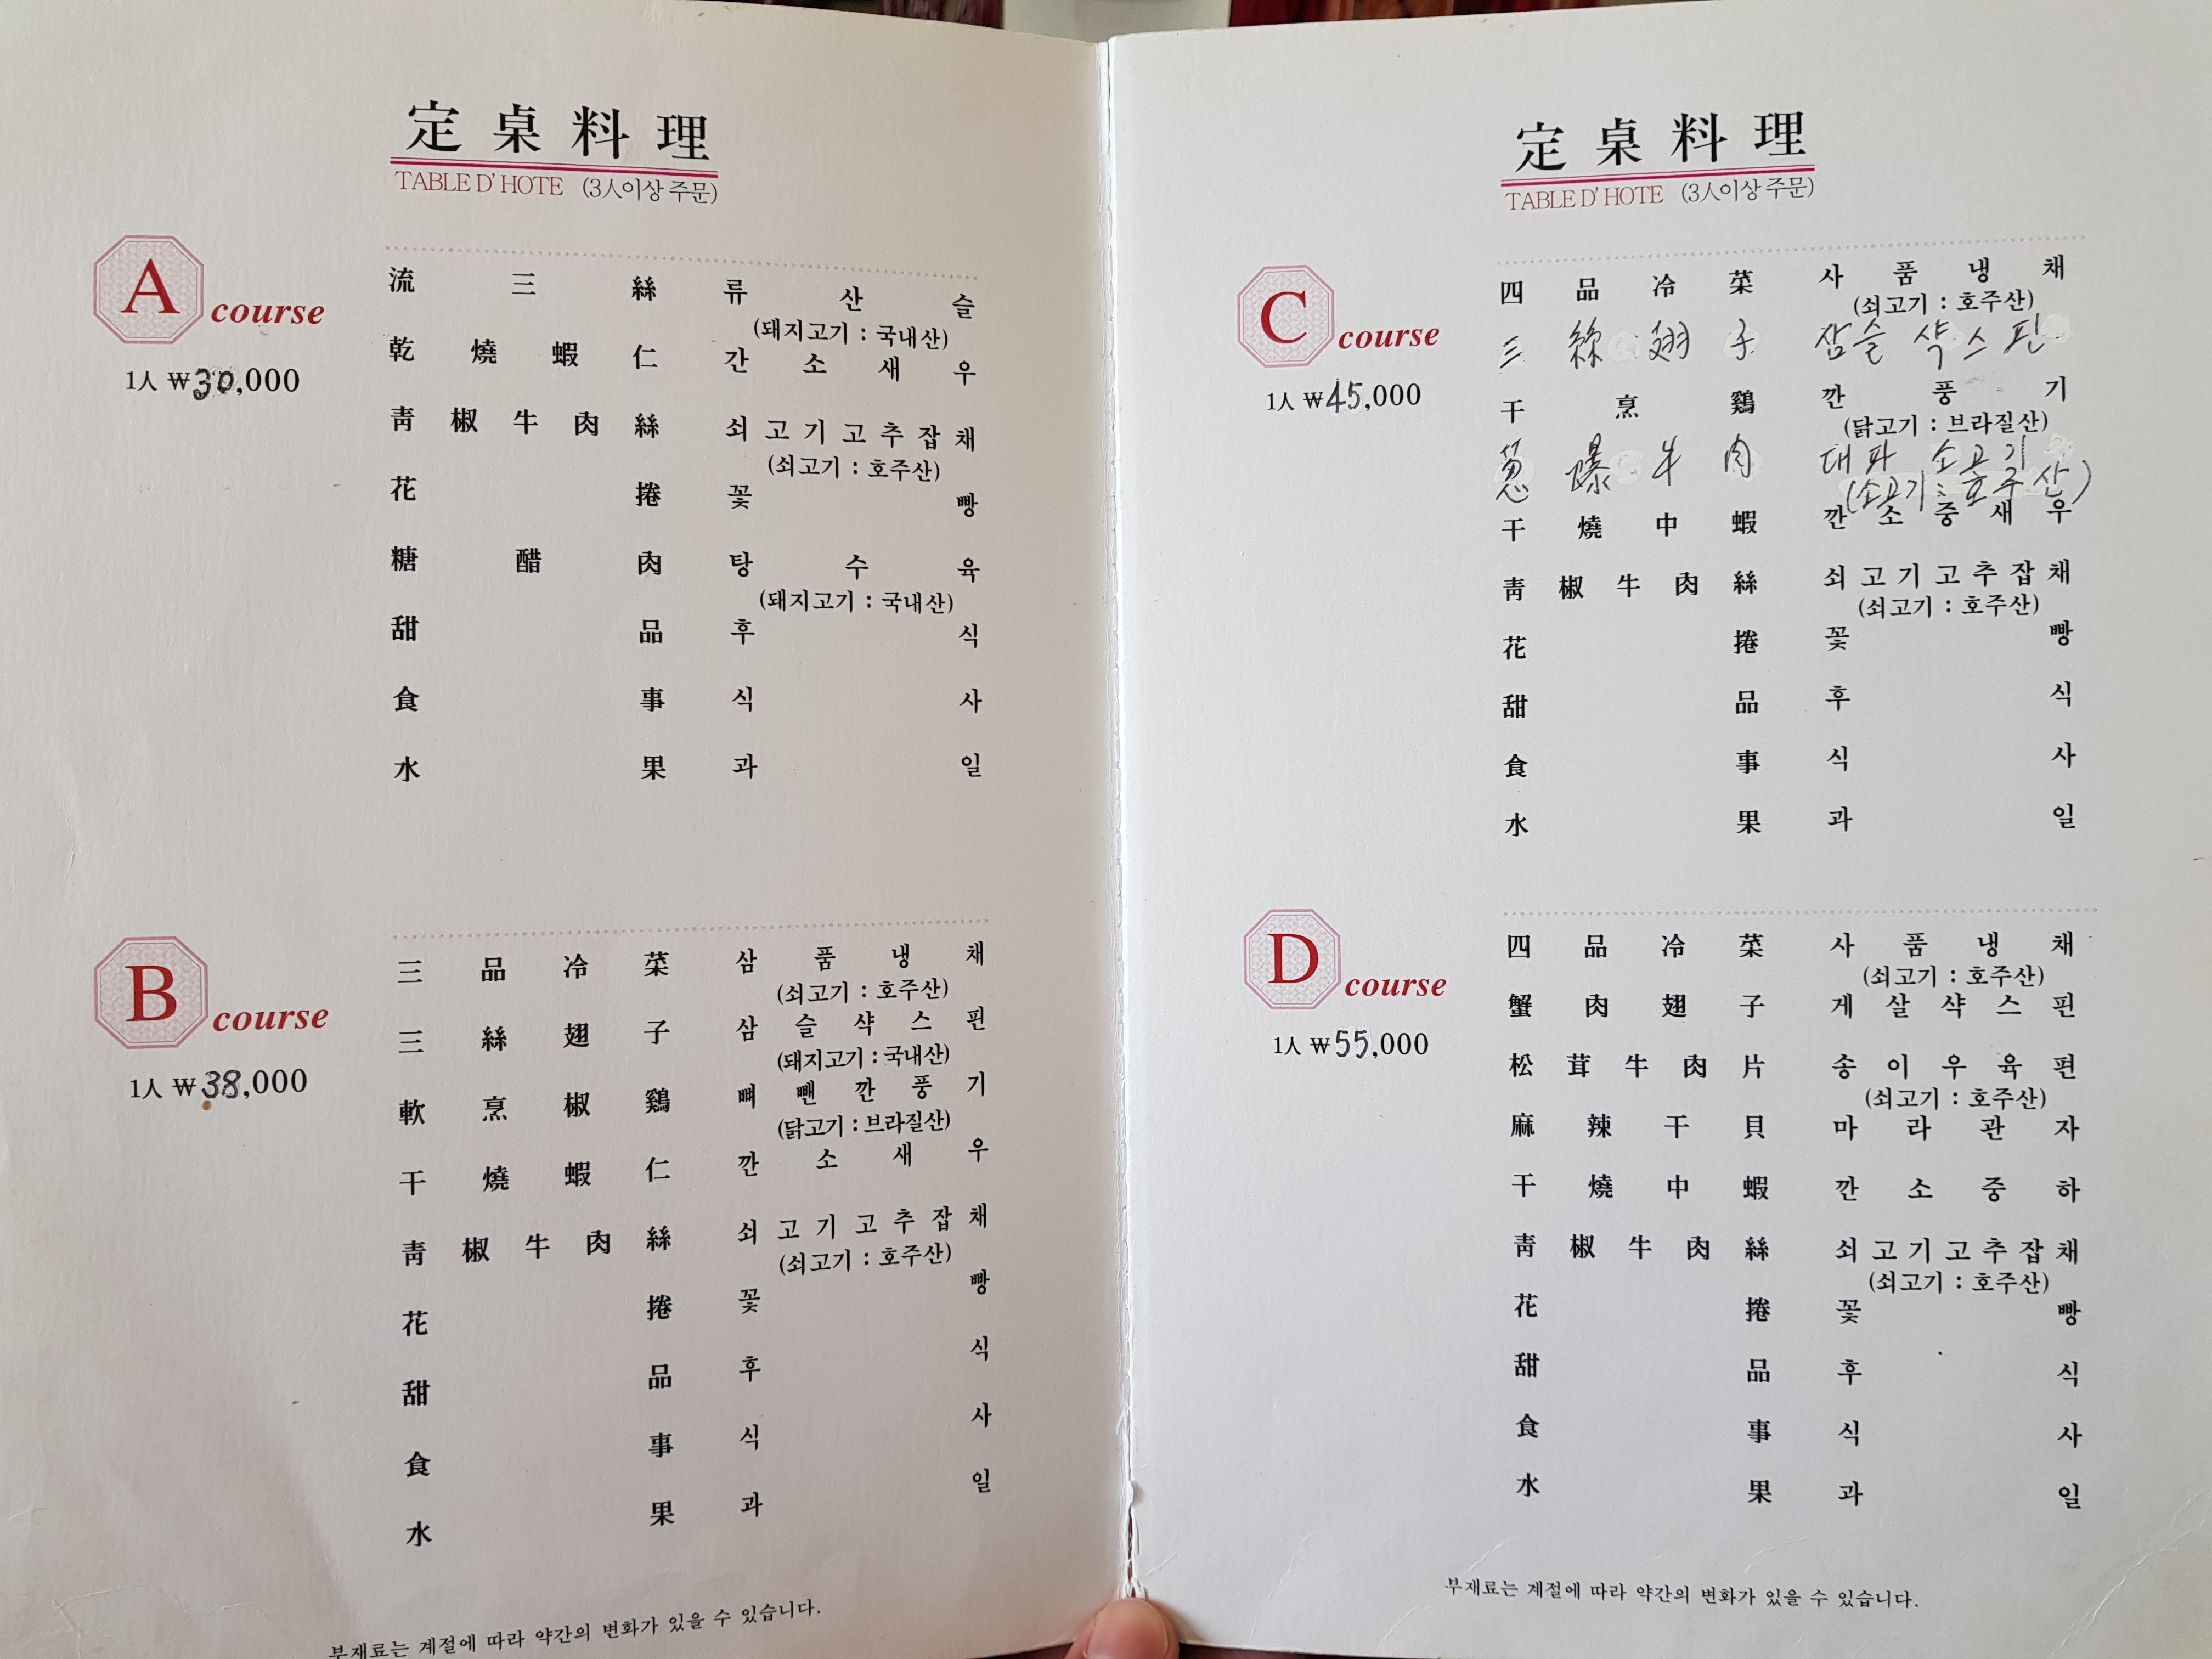 定桌料理
TABLE D' HOTE (3人이상 주문)
A course
1人 ₩30,000
流三絲 류산슬
(돼지고기 : 국내산)
乾燒蝦仁 간소새우
靑椒牛肉絲 쇠고기고추잡채
(쇠고기 : 호주산)
花捲 꽃빵
糖醋肉 탕수육
(돼지고기 : 국내산)
甜品 후식
食事 식사
水果 과일
B course
1人 ₩38,000
三品冷菜 삼품냉채
(쇠고기 : 호주산)
三絲翅子 삼슬샥스핀
(돼지고기 : 국내산)
軟烹椒鷄 뼈뺀깐풍기
(닭고기 : 브라질산)
干燒蝦仁 깐소새우
靑椒牛肉絲 쇠고기고추잡채
(쇠고기 : 호주산)
花捲 꽃빵
甜品 후식
食事 식사
水果 과일
부재료는 계절에 따라 약간의 변화가 있을 수 있습니다.
定桌料理
TABLE D' HOTE (3人이상 주문)
C course
1人 ₩45,000
四品冷菜 사품냉채
(쇠고기 : 호주산)
三絲翅子 삼슬 샥스핀
干烹鷄 깐풍기
(닭고기 : 브라질산)
葱爆牛肉 대파 소고기
(소고기 : 호주산)
干燒中蝦 깐소중새우
靑椒牛肉絲 쇠고기고추잡채
(쇠고기 : 호주산)
花捲 꽃빵
甜品 후식
食事 식사
水果 과일
D course
1人 ₩55,000
四品冷菜 사품냉채
(쇠고기 : 호주산)
蟹肉翅子 게살샥스핀
松茸牛肉片 송이우육편
(쇠고기 : 호주산)
麻辣干貝 마라관자
干燒中蝦 깐소중하
靑椒牛肉絲 쇠고기고추잡채
(쇠고기 : 호주산)
花捲 꽃빵
甜品 후식
食事 식사
水果 과일
부재료는 계절에 따라 약간의 변화가 있을 수 있습니다.